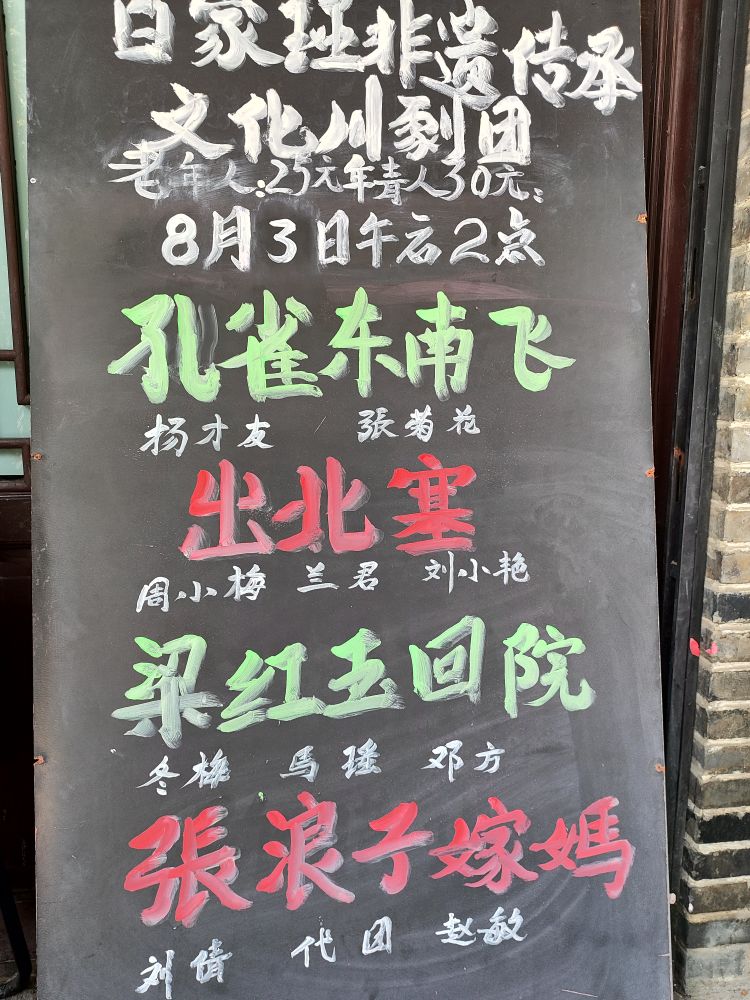 白家班非遗传承
文化川剧团
老年人:25元年青人30元:
8月3日午后2点
孔雀东南飞
杨才友 張菊花
出北塞
周小梅 兰君 刘小艳
梁红玉回院
冬梅 马瑶 邓方
張浪子嫁媽
刘倩 代团 赵敏